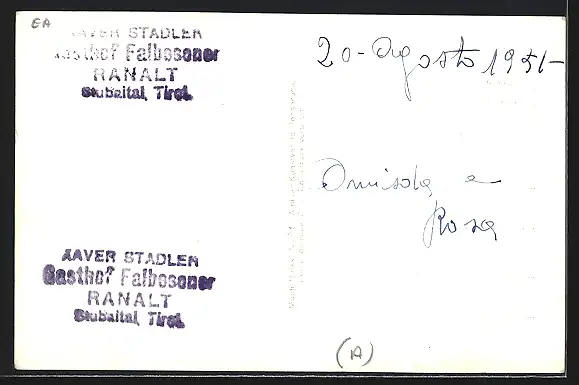 EA
XAVER STADLER
Gasthof Falbosoner
RANALT
Stubaital, Tirol
20-Agosto 1951-
Omisola e
Rosa
XAVER STADLER
Gasthof Falbosoner
RANALT
Stubaital, Tirol
(A)